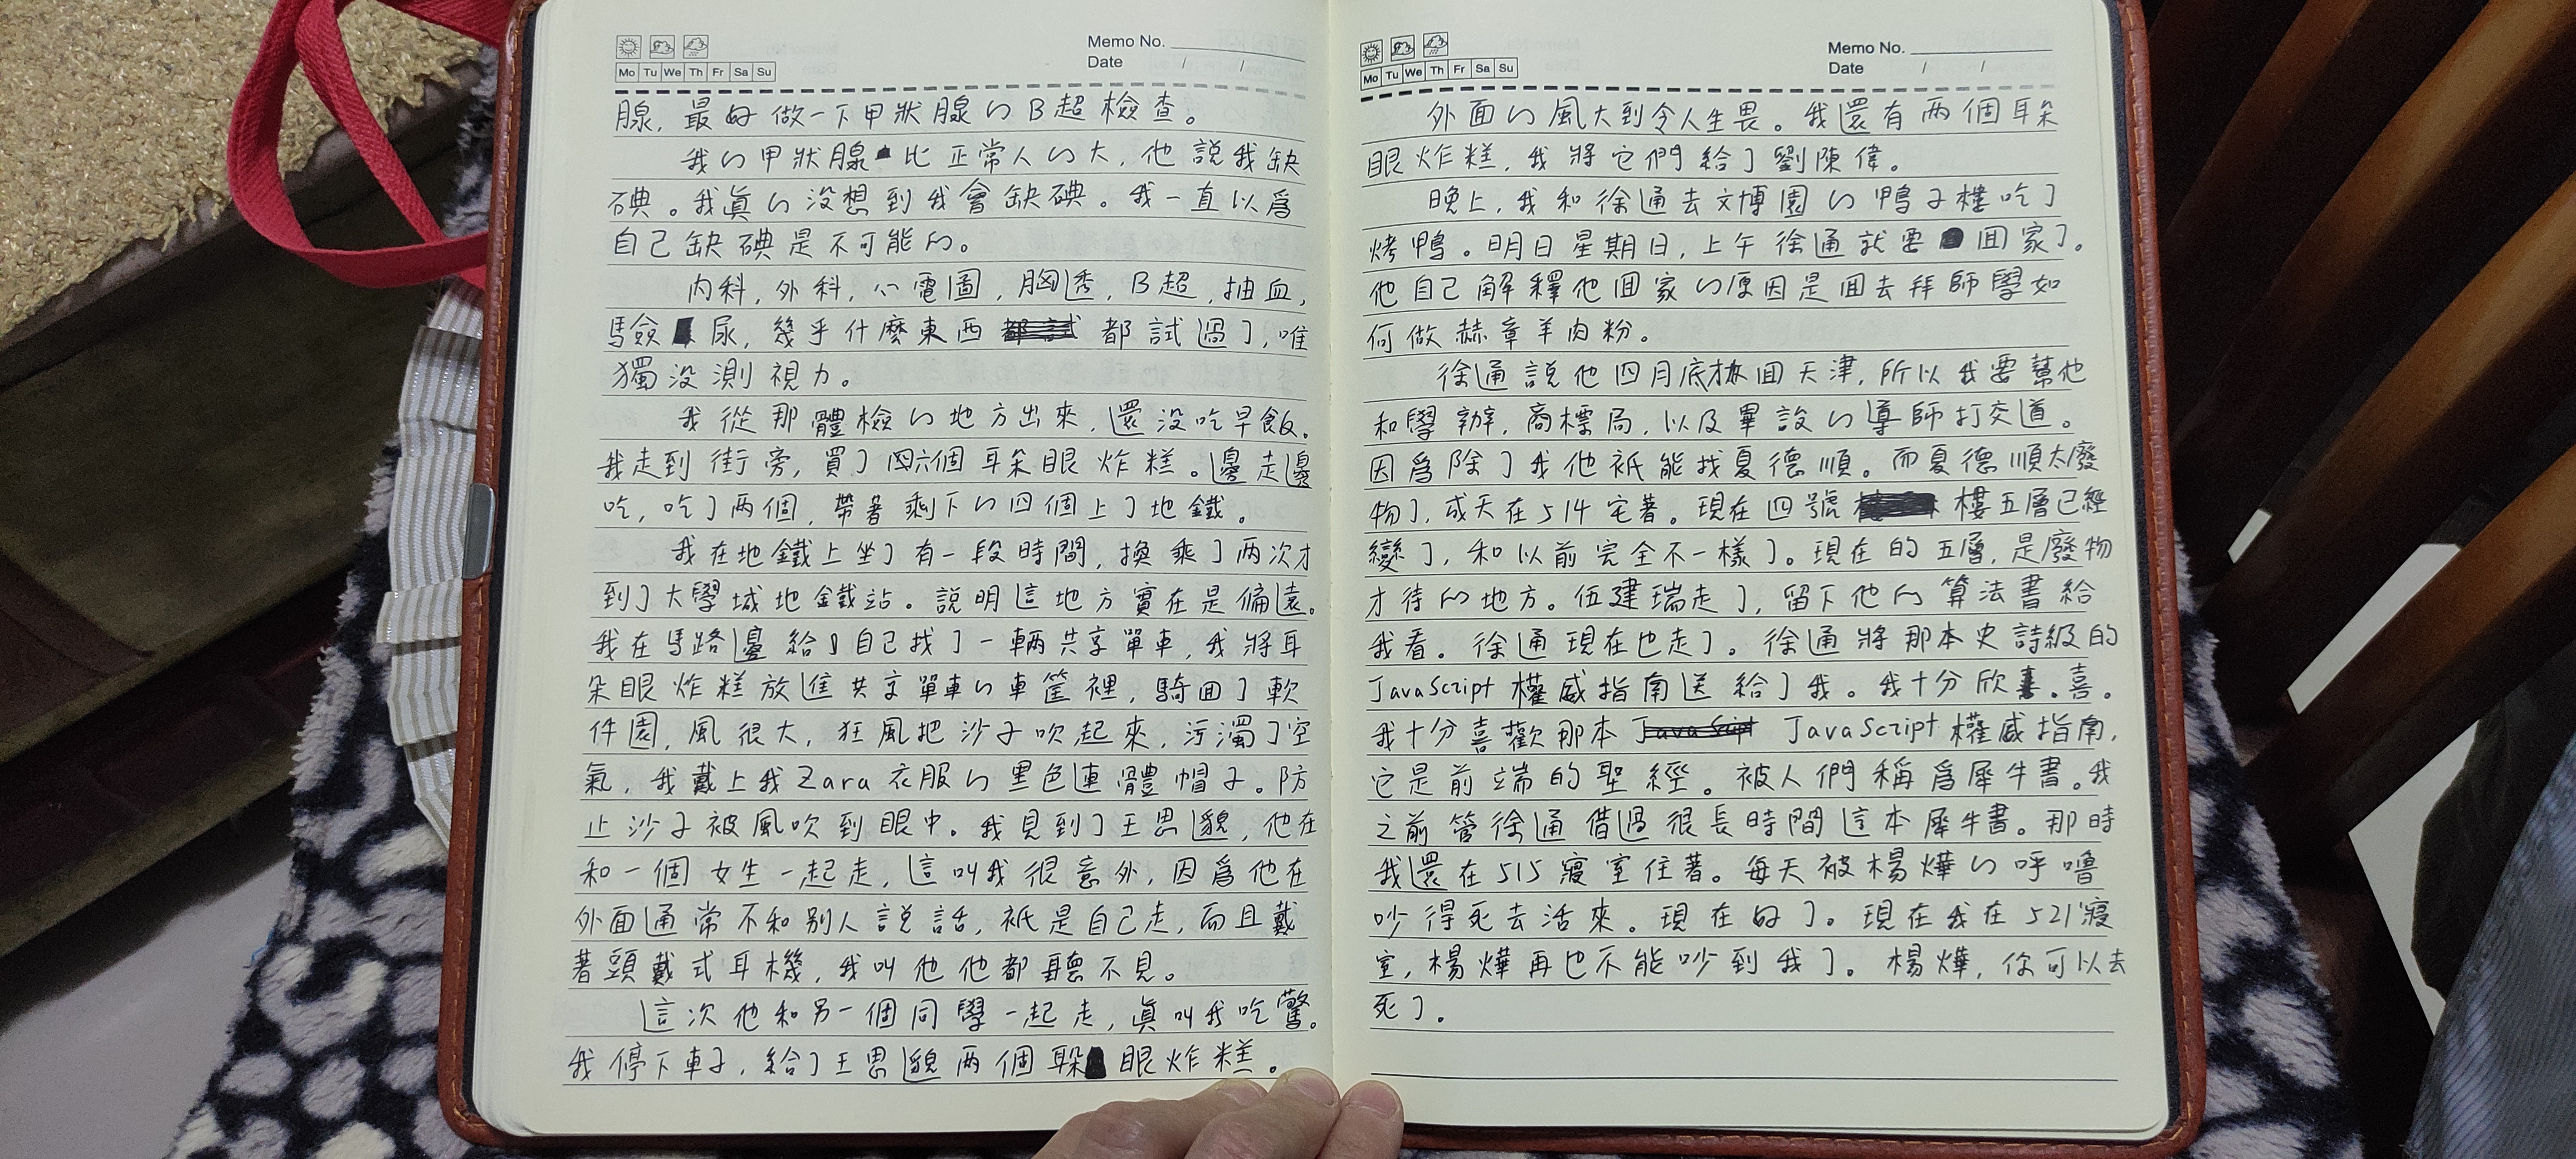 Memo No.
Date / /
Mo Tu We Th Fr Sa Su
腺，最好做一下甲狀腺的B超檢查。
我的甲狀腺比正常人的大，他說我缺
碘。我真的沒想到我會缺碘。我一直以爲
自己缺碘是不可能的。
内科，外科，心電圖，胸透，B超，抽血，
驗尿，幾乎什麼東西都試過了，唯
獨没測視力。
我從那體檢的地方出來，還没吃早飯。
我走到街旁，買了六個耳朵眼炸糕。邊走邊
吃，吃了兩個，帶着剩下的四個上了地鐵。
我在地鐵上坐了有一段時間，換乘了兩次才
到了大學城地鐵站。說明這地方實在是偏遠。
我在馬路邊給自己找了一輛共享單車，我將耳
朵眼炸糕放進共享單車的車筐裡，騎回了軟
件園，風很大，狂風把沙子吹起來，污濁了空
氣，我戴上我Zara衣服的黑色連體帽子。防
止沙子被風吹到眼中。我見到了王思邈，他在
和一個女生一起走，這叫我很意外，因爲他在
外面通常不和別人說話，衹是自己走，而且戴
著頭戴式耳機，我叫他他都聽不見。
這次他和另一個同學一起走，真叫我吃驚。
我停下車子，給了王思邈兩個耳朵眼炸糕。
Memo No.
Date / /
Mo Tu We Th Fr Sa Su
外面的風大到令人生畏。我還有兩個耳朵
眼炸糕，我將它們給了劉陳偉。
晚上，我和徐通去文博園的鴨子樓吃了
烤鴨。明日星期日，上午徐通就要回家了。
他自己解釋他回家的原因是回去拜師學如
何做赫章羊肉粉。
徐通說他四月底才回天津，所以我要幫他
和學辦，商標局，以及畢設的導師打交道。
因爲除了我他衹能找夏德順。而夏德順太廢
物了，成天在514宅著。現在四號樓五層已經
變了，和以前完全不一樣了。現在的五層，是廢物
才待的地方。伍建瑞走了，留下他的算法書給
我看。徐通現在也走了。徐通將那本史詩級的
JavaScript權威指南送給了我。我十分欣喜。
我十分喜歡那本JavaScript權威指南，
它是前端的聖經。被人們稱爲犀牛書。我
之前管徐通借過很長時間這本犀牛書。那時
我還在515寢室住著。每天被楊燁的呼嚕
吵得死去活來。現在好了。現在我在521寢
室，楊燁再也不能吵到我了。楊燁，你可以去
死了。